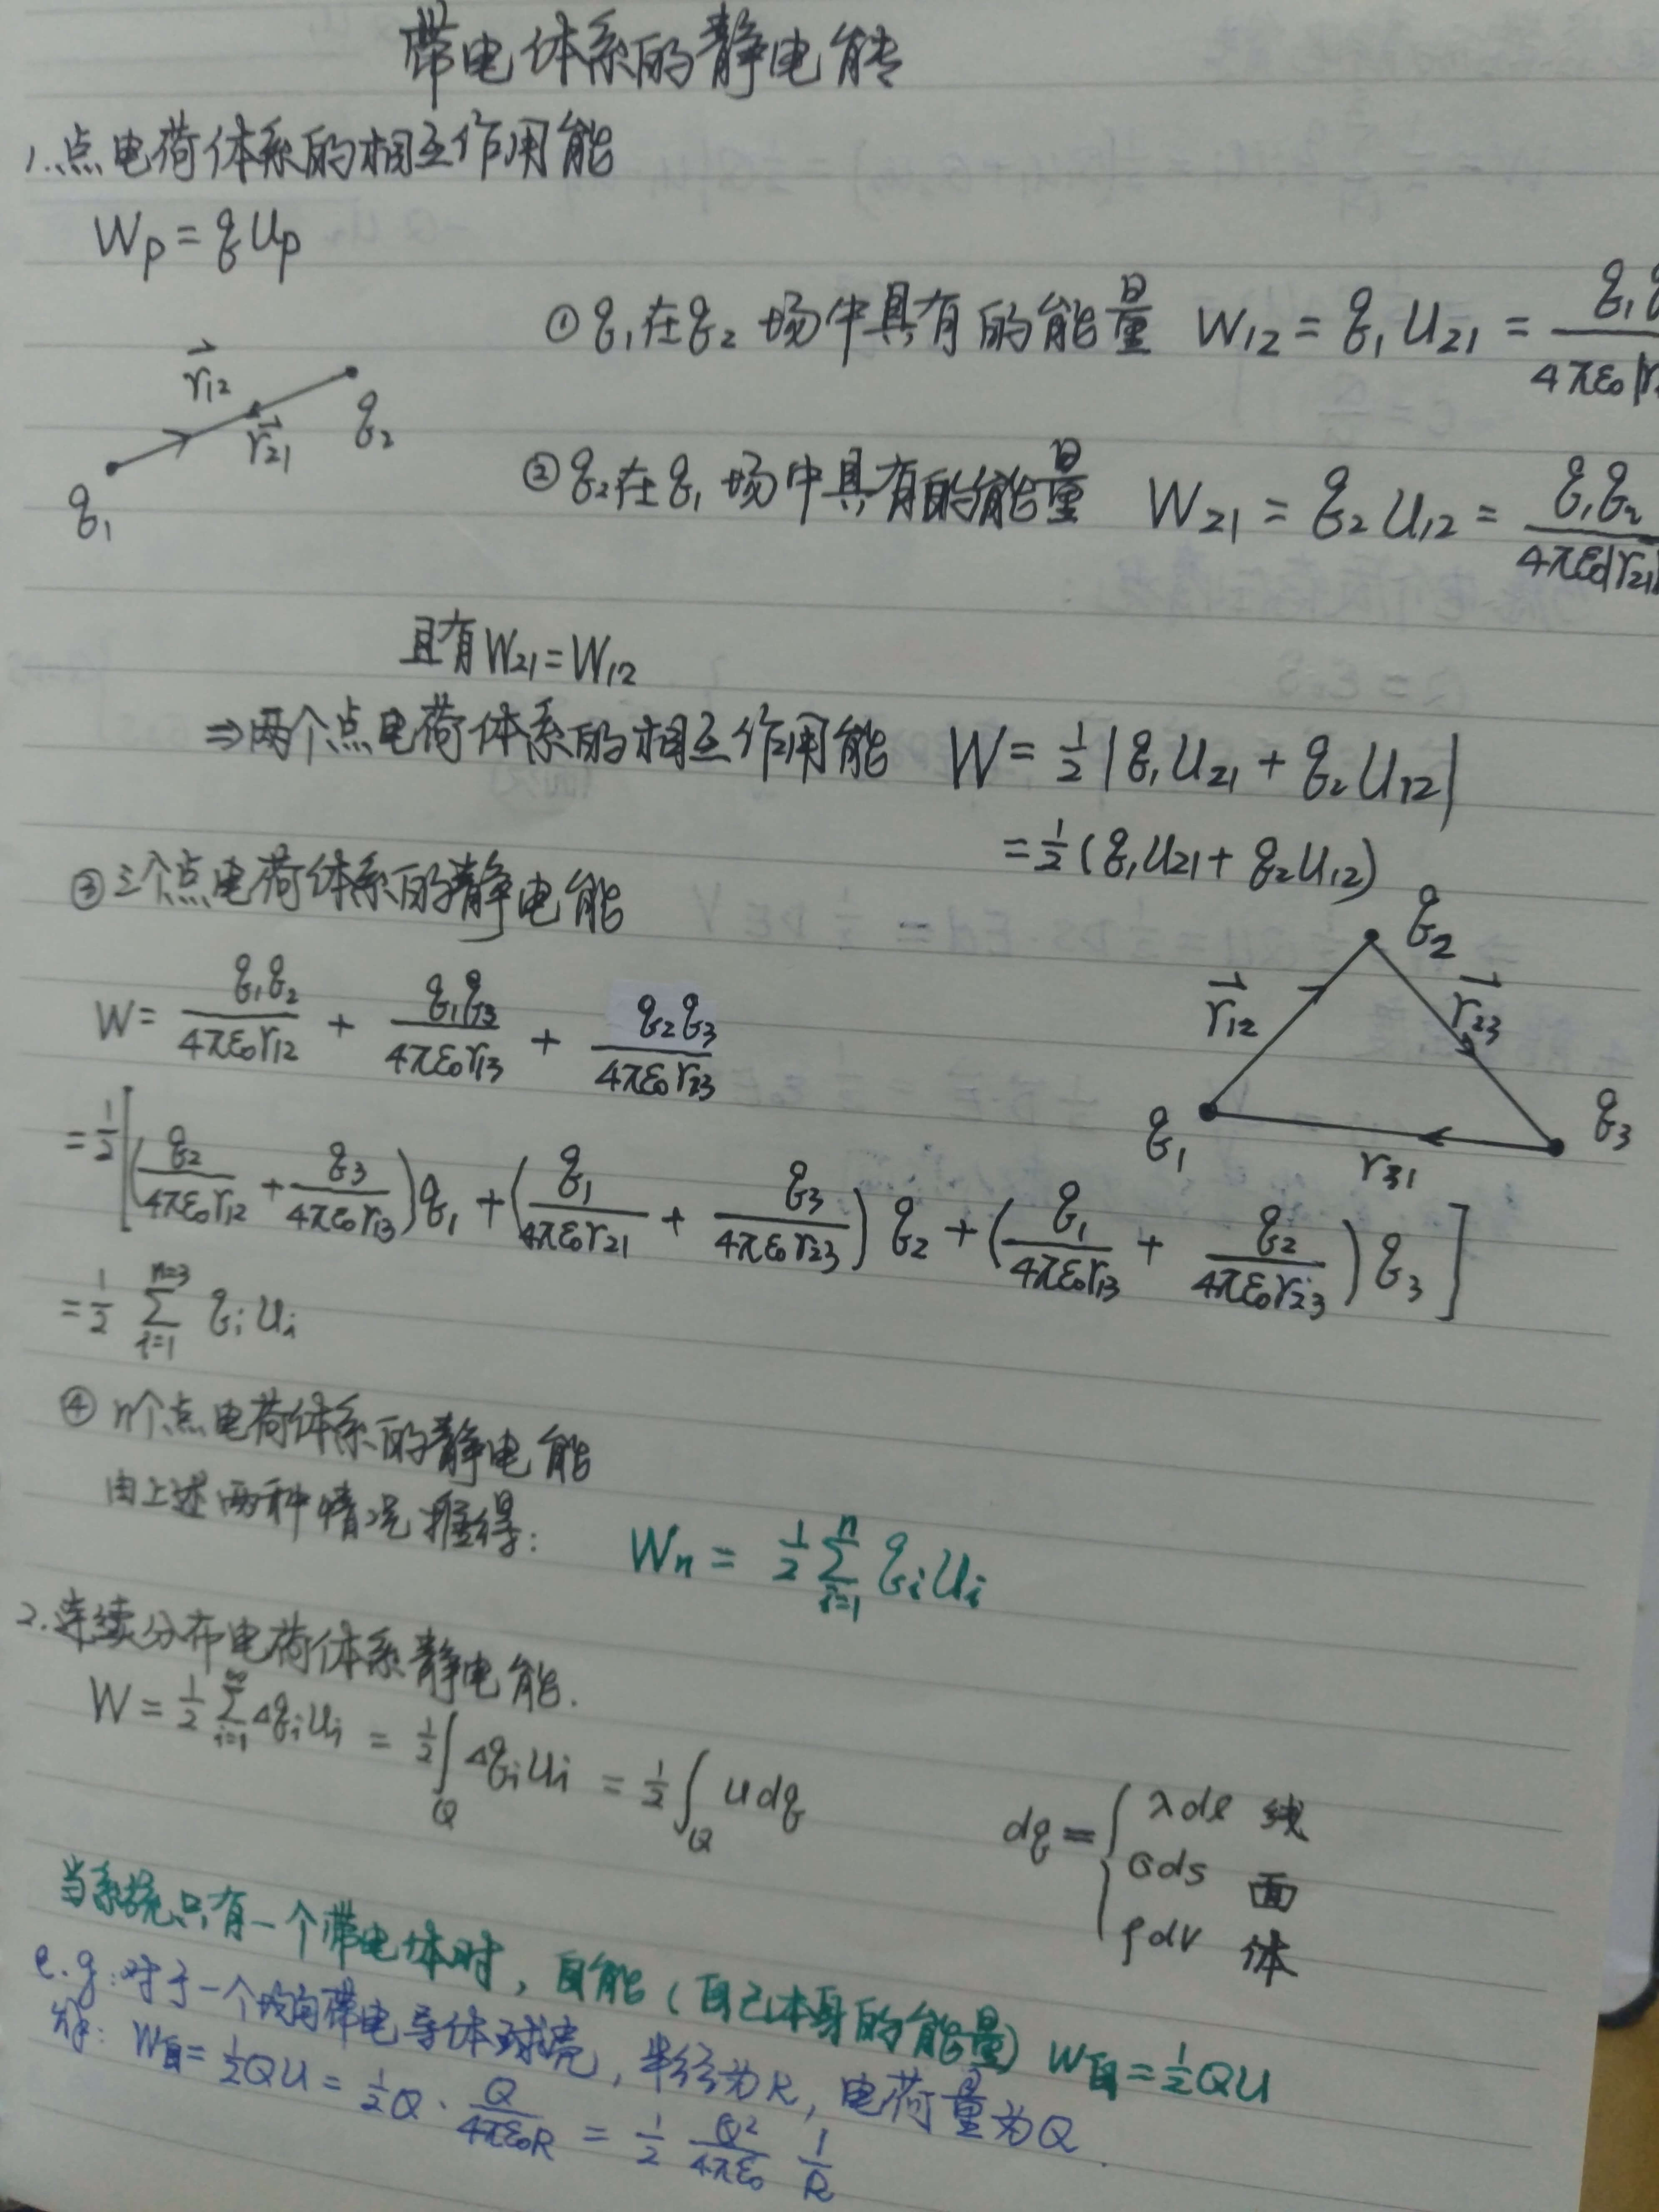 带电体系的静电能
1.点电荷体系的相互作用能
Wp = qUp
①q₁在q₂场中具有的能量 W₁₂ = q₁U₂₁ = q₁q / 4πε₀|r
r₁₂
r₂₁
q₂
q₁
②q₂在q₁场中具有的能量 W₂₁ = q₂U₁₂ = q₁q₂ / 4πε₀|r₂₁|
且有W₂₁=W₁₂
⇒两个点电荷体系的相互作用能 W = 1/2 |q₁U₂₁ + q₂U₁₂|
= 1/2 (q₁U₂₁ + q₂U₁₂)
③三个点电荷体系的静电能
W = q₁q₂/4πε₀r₁₂ + q₁q₃/4πε₀r₁₃ + q₂q₃/4πε₀r₂₃
q₂
r₁₂
r₂₃
q₁
q₃
r₃₁
= 1/2 [(q₂/4πε₀r₁₂ + q₃/4πε₀r₁₃)q₁ + (q₁/4πε₀r₂₁ + q₃/4πε₀r₂₃)q₂ + (q₁/4πε₀r₁₃ + q₂/4πε₀r₂₃)q₃]
= 1/2 Σ(i=1, n=3) qᵢUᵢ
④ n个点电荷体系的静电能
由上述两种情况推得: Wn = 1/2 Σ(i=1, n) qᵢUᵢ
2.连续分布电荷体系静电能.
W = 1/2 Σ(i=1, ∞) Δqᵢuᵢ = 1/2 ∫Q ΔqᵢUᵢ = 1/2 ∫Q u dq
dq = { λdl 线
σds 面
ρdv 体
当系统只有一个带电体时,自能(自己本身的能量) W自=1/2QU
e.g:对于一个均匀带电导体球壳,半径为R,电荷量为Q.
解: W自= 1/2QU = 1/2Q · Q/4πε₀R = 1/2 Q²/4πε₀ 1/R